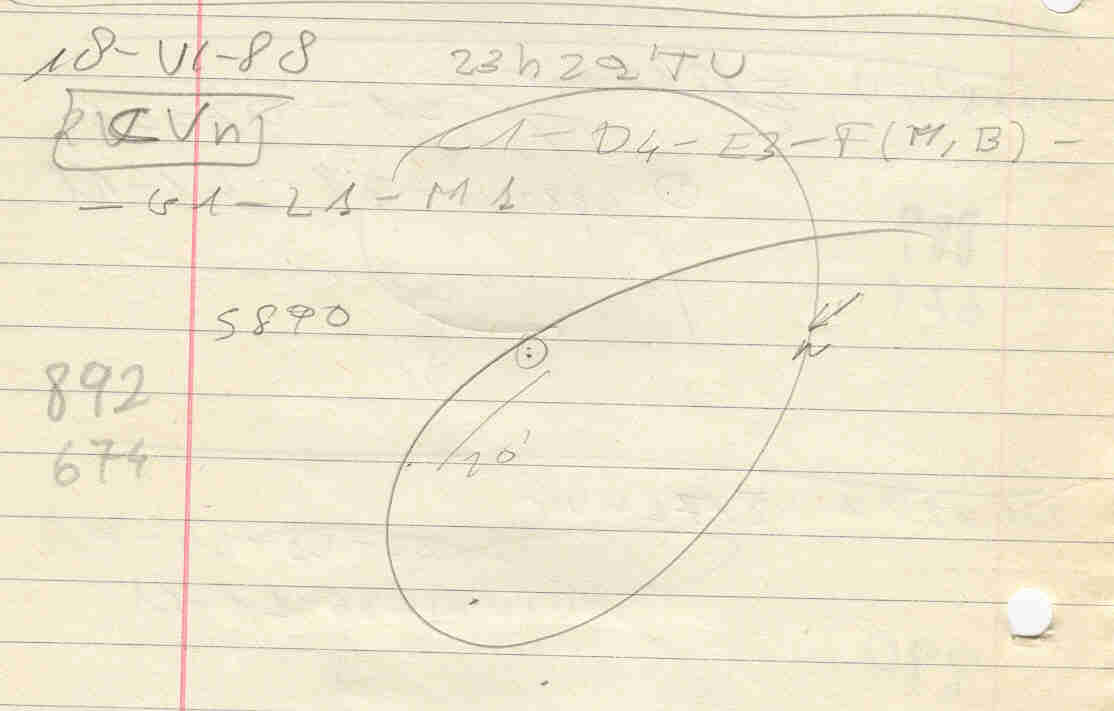 18-VI-88 23h29'TU
RV CVn
C1-D4-E3-F(M,B)-
-G1-L1-M1
5890
N
892
10'
674